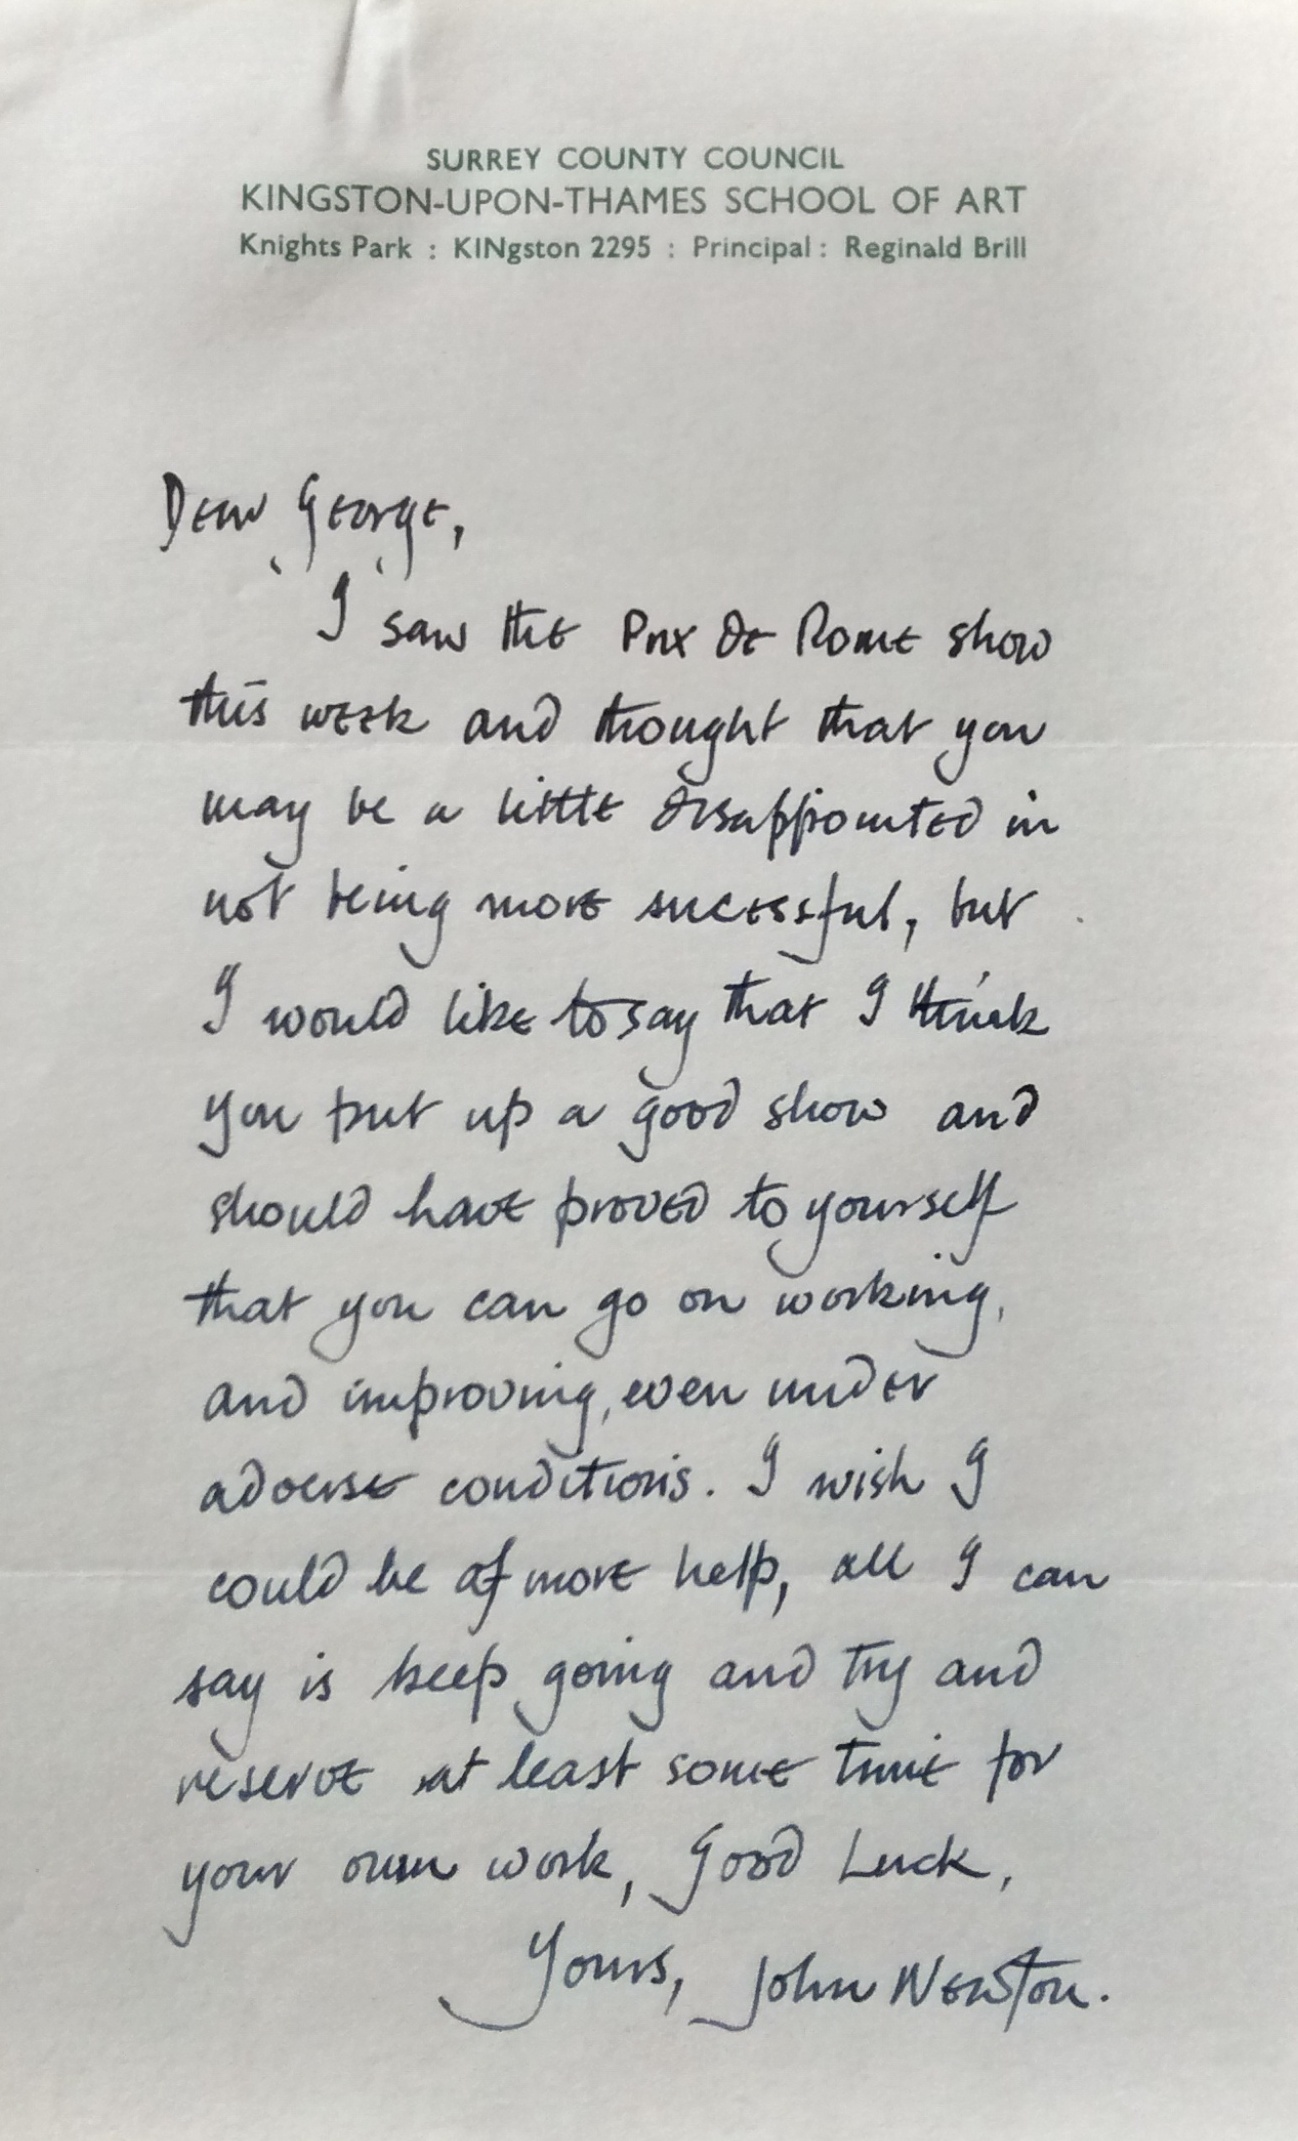 SURREY COUNTY COUNCIL
KINGSTON-UPON-THAMES SCHOOL OF ART
Knights Park : KINgston 2295 : Principal : Reginald Brill
Dear George,
I saw the Prix de Rome show
this week and thought that you
may be a little disappointed in
not being more sucessful, but
I would like to say that I think
you put up a good show and
should have proved to yourself
that you can go on working,
and improving, even under
adverse conditions. I wish I
could be of more help, all I can
say is keep going and try and
reserve at least some time for
your own work, Good Luck,
Yours, John Newton.